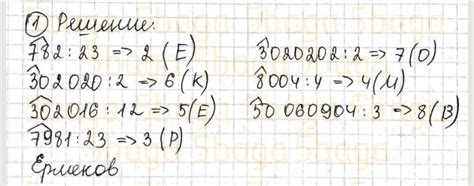 ① Решение:
782 : 23 => 2 (Е)
302020 : 2 => 6 (К)
302016 : 12 => 5 (Е)
7981 : 23 => 3 (Р)
3020202 : 2 => 7 (О)
8004 : 4 => 4 (М)
50 060904 : 3 => 8 (В)
Ермеков